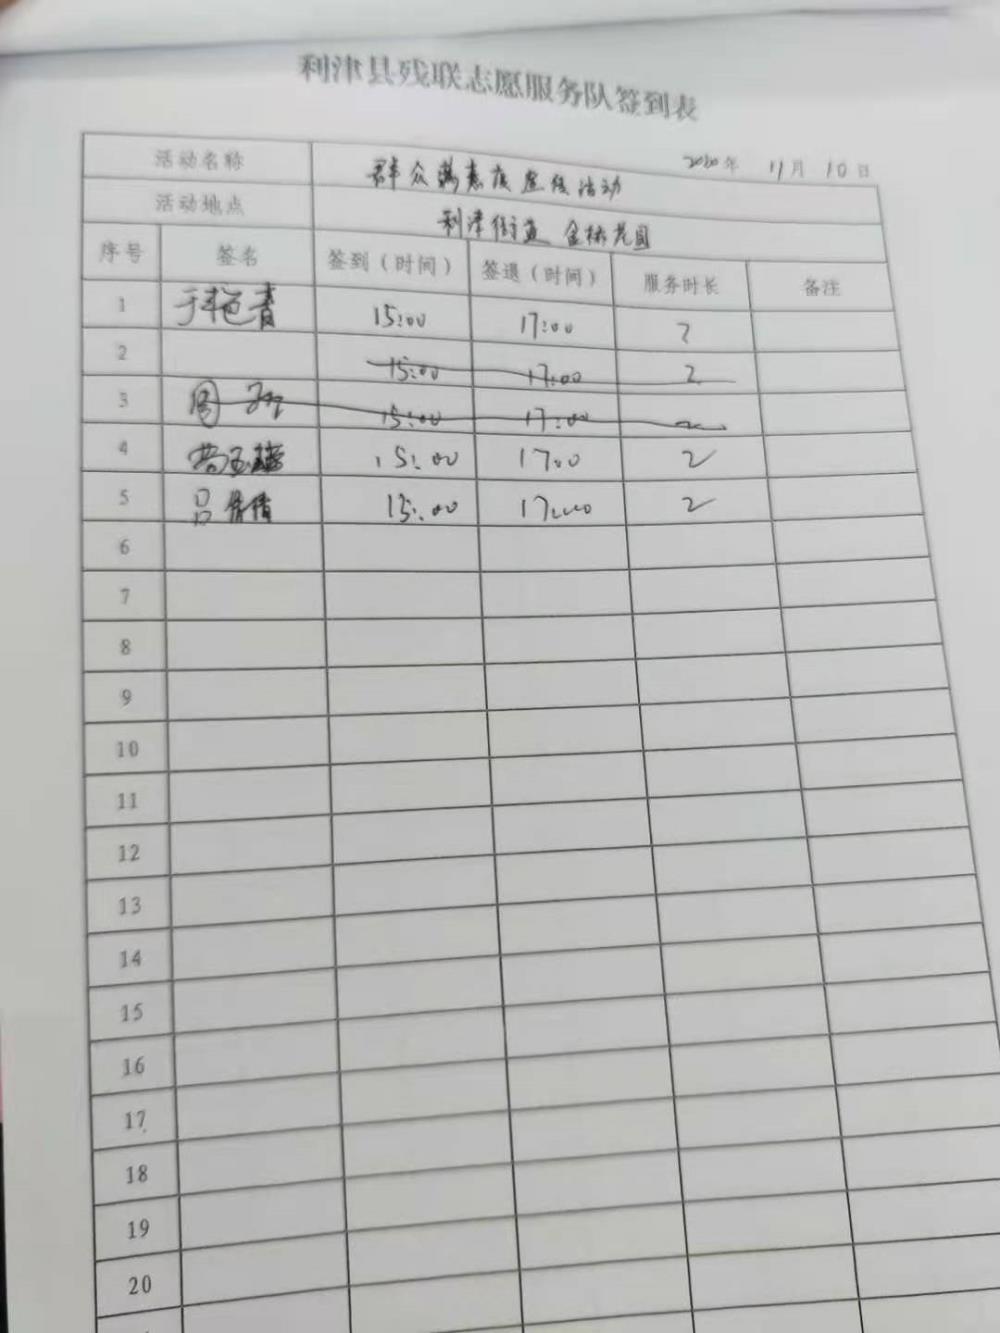 利津县残联志愿服务队签到表
2020年 11月 10日
活动名称 群众满意度宣传活动
活动地点 利津街道 金桥花园
序号 签名 签到（时间） 签退（时间） 服务时长 备注
1 于艳青 15:00 17:00 2
2 15:00 17:00 2
3 周 15:00 17:00 2
4 15:00 17:00 2
5 吕倩倩 15:00 17:00 2
6
7
8
9
10
11
12
13
14
15
16
17
18
19
20